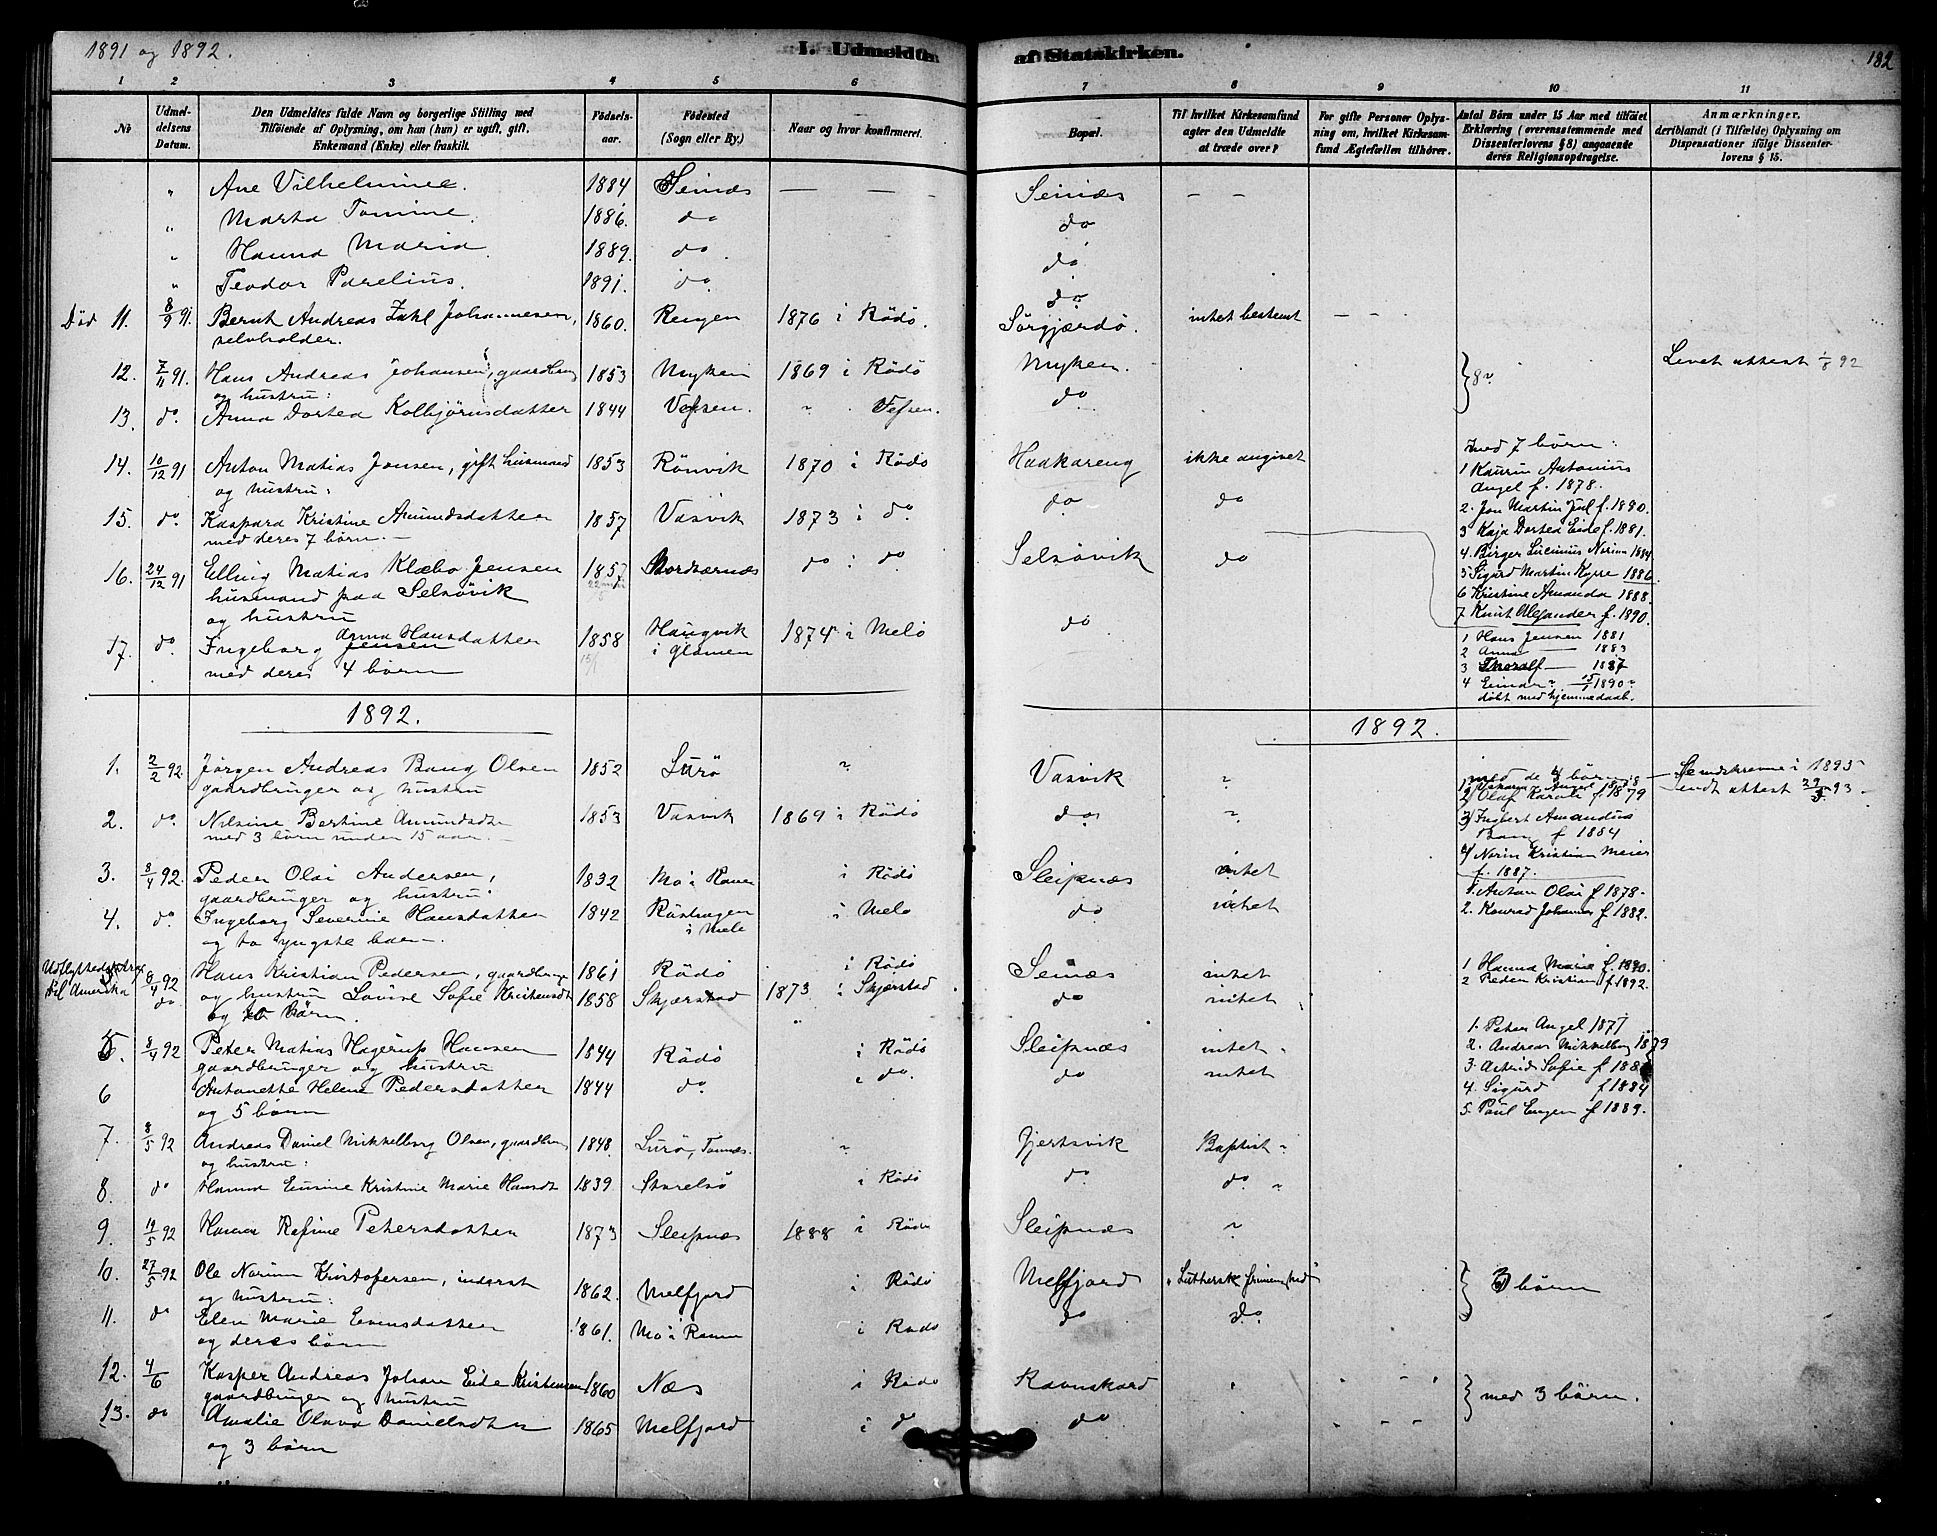 1891 og 1892.
I. Udmeldte
af Statskirken.
182
1 2 3 4 5 6
7 8 9 10 11
No
Udmel-
delsens
Datum.
Den Udmeldtes fulde Navn og borgerlige Stilling med
Tilføiende af Oplysning, om han (hun) er ugift, gift,
Enkemand (Enke) eller fraskilt.
Fødsels-
aar.
Fødested
(Sogn eller By.)
Naar og hvor konfirmeret.
Bopæl.
Til hvilket Kirkesamfund
agter den Udmeldte
at træde over?
For gifte Personer Oplys-
ning om, hvilket Kirkesam-
fund Ægtefællen tilhører.
Antal Börn under 15 Aar med tilføiet
Erklæring (overensstemmende med
Dissenterlovens § 8) angaaende
deres Religionsopdragelse.
Anmærkninger,
deriblandt (i Tilfælde) Oplysning om
Dispensationer ifölge Dissenter-
lovens § 15.
" Ane Vilhelmine. 1884 Seines — — - Seines — —
" Marta Tomine. 1886. do do
" Hanna Maria. 1889. do do
" Teodor Parelius. 1891. do do
Död 11. 8/9 91. Bernt Andreas Zahl Johannesen, 1860. Rengen 1876 i Rödö. Sörgjærdö. intet bestemt — - -
selvholder.
12. 7/11 91. Hans Andreas Johansen, gaardbrug 1853 Myken 1869 i Rödö Myken. 8 attest 1/8 92
og hustru:
13. do. Anna Dortea Kolbjörnsdatter 1844 Vefsen. " Vefsen. do
14. 10/12 91 Anton Matias Jensen, gift husmand 1853 Rönvik 1870 i Rödö Hadkareng ikke angivet
og hustru:
15. do. Kaspara Kristine Amundsdatter 1857 Vasvik 1873 i do. do do
med deres 7 börn. —
med 7 börn:
1 Kaurin Antonius
Angel f. 1878.
2. Jon Martin Juel f. 1890.
3 Kaja Dortea Eide f. 1881.
4. Birger Lucinius Norum 1884.
5 Sigurd Martin Kyrre 1886.
6 Kristine Amanda 1888.
7 Knut Alexander f. 1890.
16. 24/12 91 Elling Matias Klæbo Jensen 1857 Nordværnes do i do Selsövik do
husmand paa Selsövik
og hustru
17. do. Ingeborg Anna Hansdatter Jensen 1858 Haugvik i Glomen 1874 i Melö do
med deres 4 börn
1 Hans Jensen 1881
2 Anna — 1883
3 Thoralf — 1887
4 Einar " 15/1 1890
döbt med hjemmedaab.
1892.
1892.
1. 2/2 92. Jörgen Andreas Bang Olsen 1852 Lurö " Vasvik "
gaardbruger og hustru
2. do. Nilsine Bertine Amundsdtr 1853 Vasvik 1869 i Rödö do "
med 3 börn under 15 aar. —
med de 4 börn — i 1895
2) Olaf Karoli f. 1879 Sendt attest 93
3) Ingbert Amandus
Bang f 1884
4) Norin Kristian Meier
f. 1887.
3. 8/4 92. Peder Olai Andersen, 1832 Mo i Ranen i Rödö Sleipnæs intet
gaardbruger og hustru:
1. Anton Olai f 1878.
4. do. Ingeborg Severine Hansdatter 1842 i Melö i Melö do intet
og to yngste börn.
2. Konrad Johannes f. 1882.
Udflyttede
til Amerika
8/4 92 Hans Kristian Pedersen, gaardbruger 1861 Rödö i Rödö Seines intet
do. og hustru Lovise Sofie Kristensdtr 1858 Skjærstad 1873 i Skjærstad do intet
og to börn.
1 Hanna Marie f. 1890.
2 Peder Kristian f 1892.
5. 8/4 92 Peter Matias Hagerup Hansen 1844 Rödö i Rödö Sleipnæs intet
gaardbruger og hustru
6 Antonette Helene Pedersdatter 1844 do. i do. do intet
og 5 börn
1. Peter Angel 1877
2. Andreas Mikkelborg 1879
3. Astrid Sofie f 188
4. Sigurd f 1884
5. Paul Engen f 1889.
7. 8/5 92 Andreas Daniel Mikkelborg Olsen, gaardbrug 1848. Lurö, Tonnes. " Gjertsvik Baptist
og hustru:
8. do Hanna Eurine Kristine Marie Hansdt 1839 Storselsö i Rödö do do.
9. 19/5 92 Hanna Refine Petersdatter 1873 Sleipnæs 1888 i Rödö Sleipnæs "
10. 27/5 92 Ole Norum Kristofersen, inderst 1862. Melfjord i Rödö Melfjord "Luthersk frimenighed" 3 börn
og hustru:
11. do Elen Marie Evensdatter 1861. Mo i Ranen i Rödö do do.
og deres börn
12. 4/6 Kasper Andreas Johan Eide Kristensen 1860 Næs i Rödö Ravnskard med 3 börn.
gaardbruger og hustru
13. do Amalie Olava Danielsdtr 1865 Melfjord i do do
og 3 börn